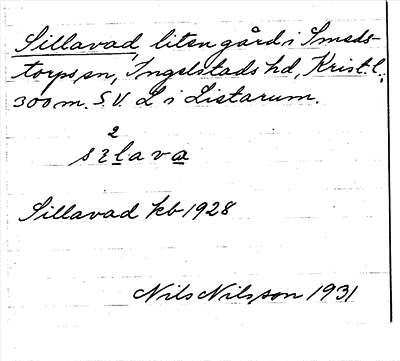 Sillavad, liten gård i Smeds-
torps sn, Ingelstads hd, Krist. l.,
300 m. S.V. L i Listarum.
2
sılava
Sillavad kb 1928
Nils Nilsson 1931